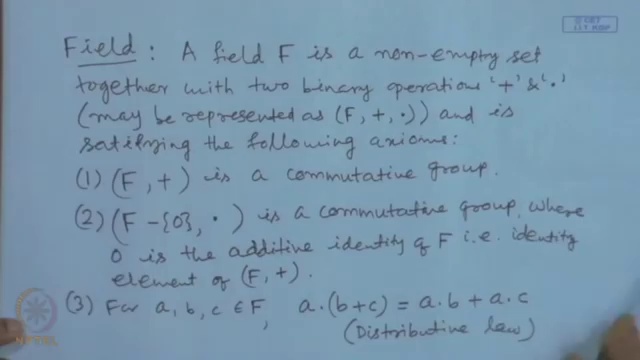 © CET
I.I.T. KGP
Field : A field F is a non-empty set
together with two binary operations '+' & '.'
(may be represented as (F, +, .)) and is
satisfying the following axioms:
(1) (F, +) is a commutative group.
(2) (F - {0}, .) is a commutative group, where
0 is the additive identity of F i.e. identity
element of (F, +).
(3) For a, b, c ∈ F, a.(b+c) = a.b + a.c
(Distributive law)
NPTEL